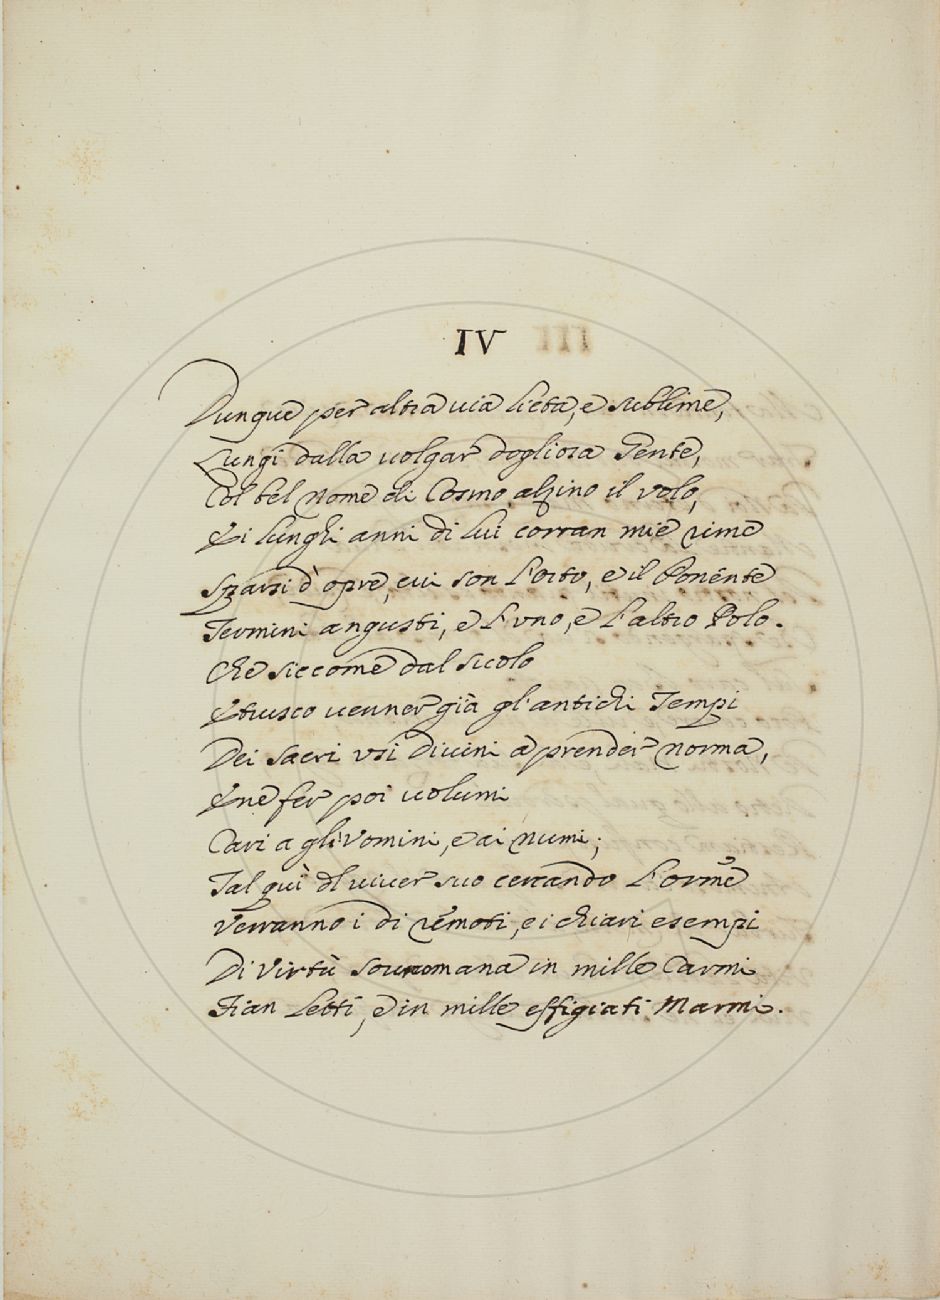 IV
Dunque per altra uia lieta, e sublime,
Lungi dalla uolgar dogliosa Gente,
Col bel Nome di Cosmo alzino il volo,
E i lunghi anni di lui corran mie rime
Sparsi d'opre, cui son l'orto, e il Ponente
Termini angusti, e l'vno, e l'altro Polo.
Che siccome dal sicolo
Etrusco uenner già gl'antichi Tempi
Dei sacri vsi diuini a prender norma,
E ne fer poi uolumi
Cari a gli Vomini, e ai Numi;
Tal quì dl uiuer suo cercando l'orme
Verranno i di remoti, e i chiari esempi
Di Virtù souraumana in mille Carmi
Fian letti, e in mille effigiati Marmi.